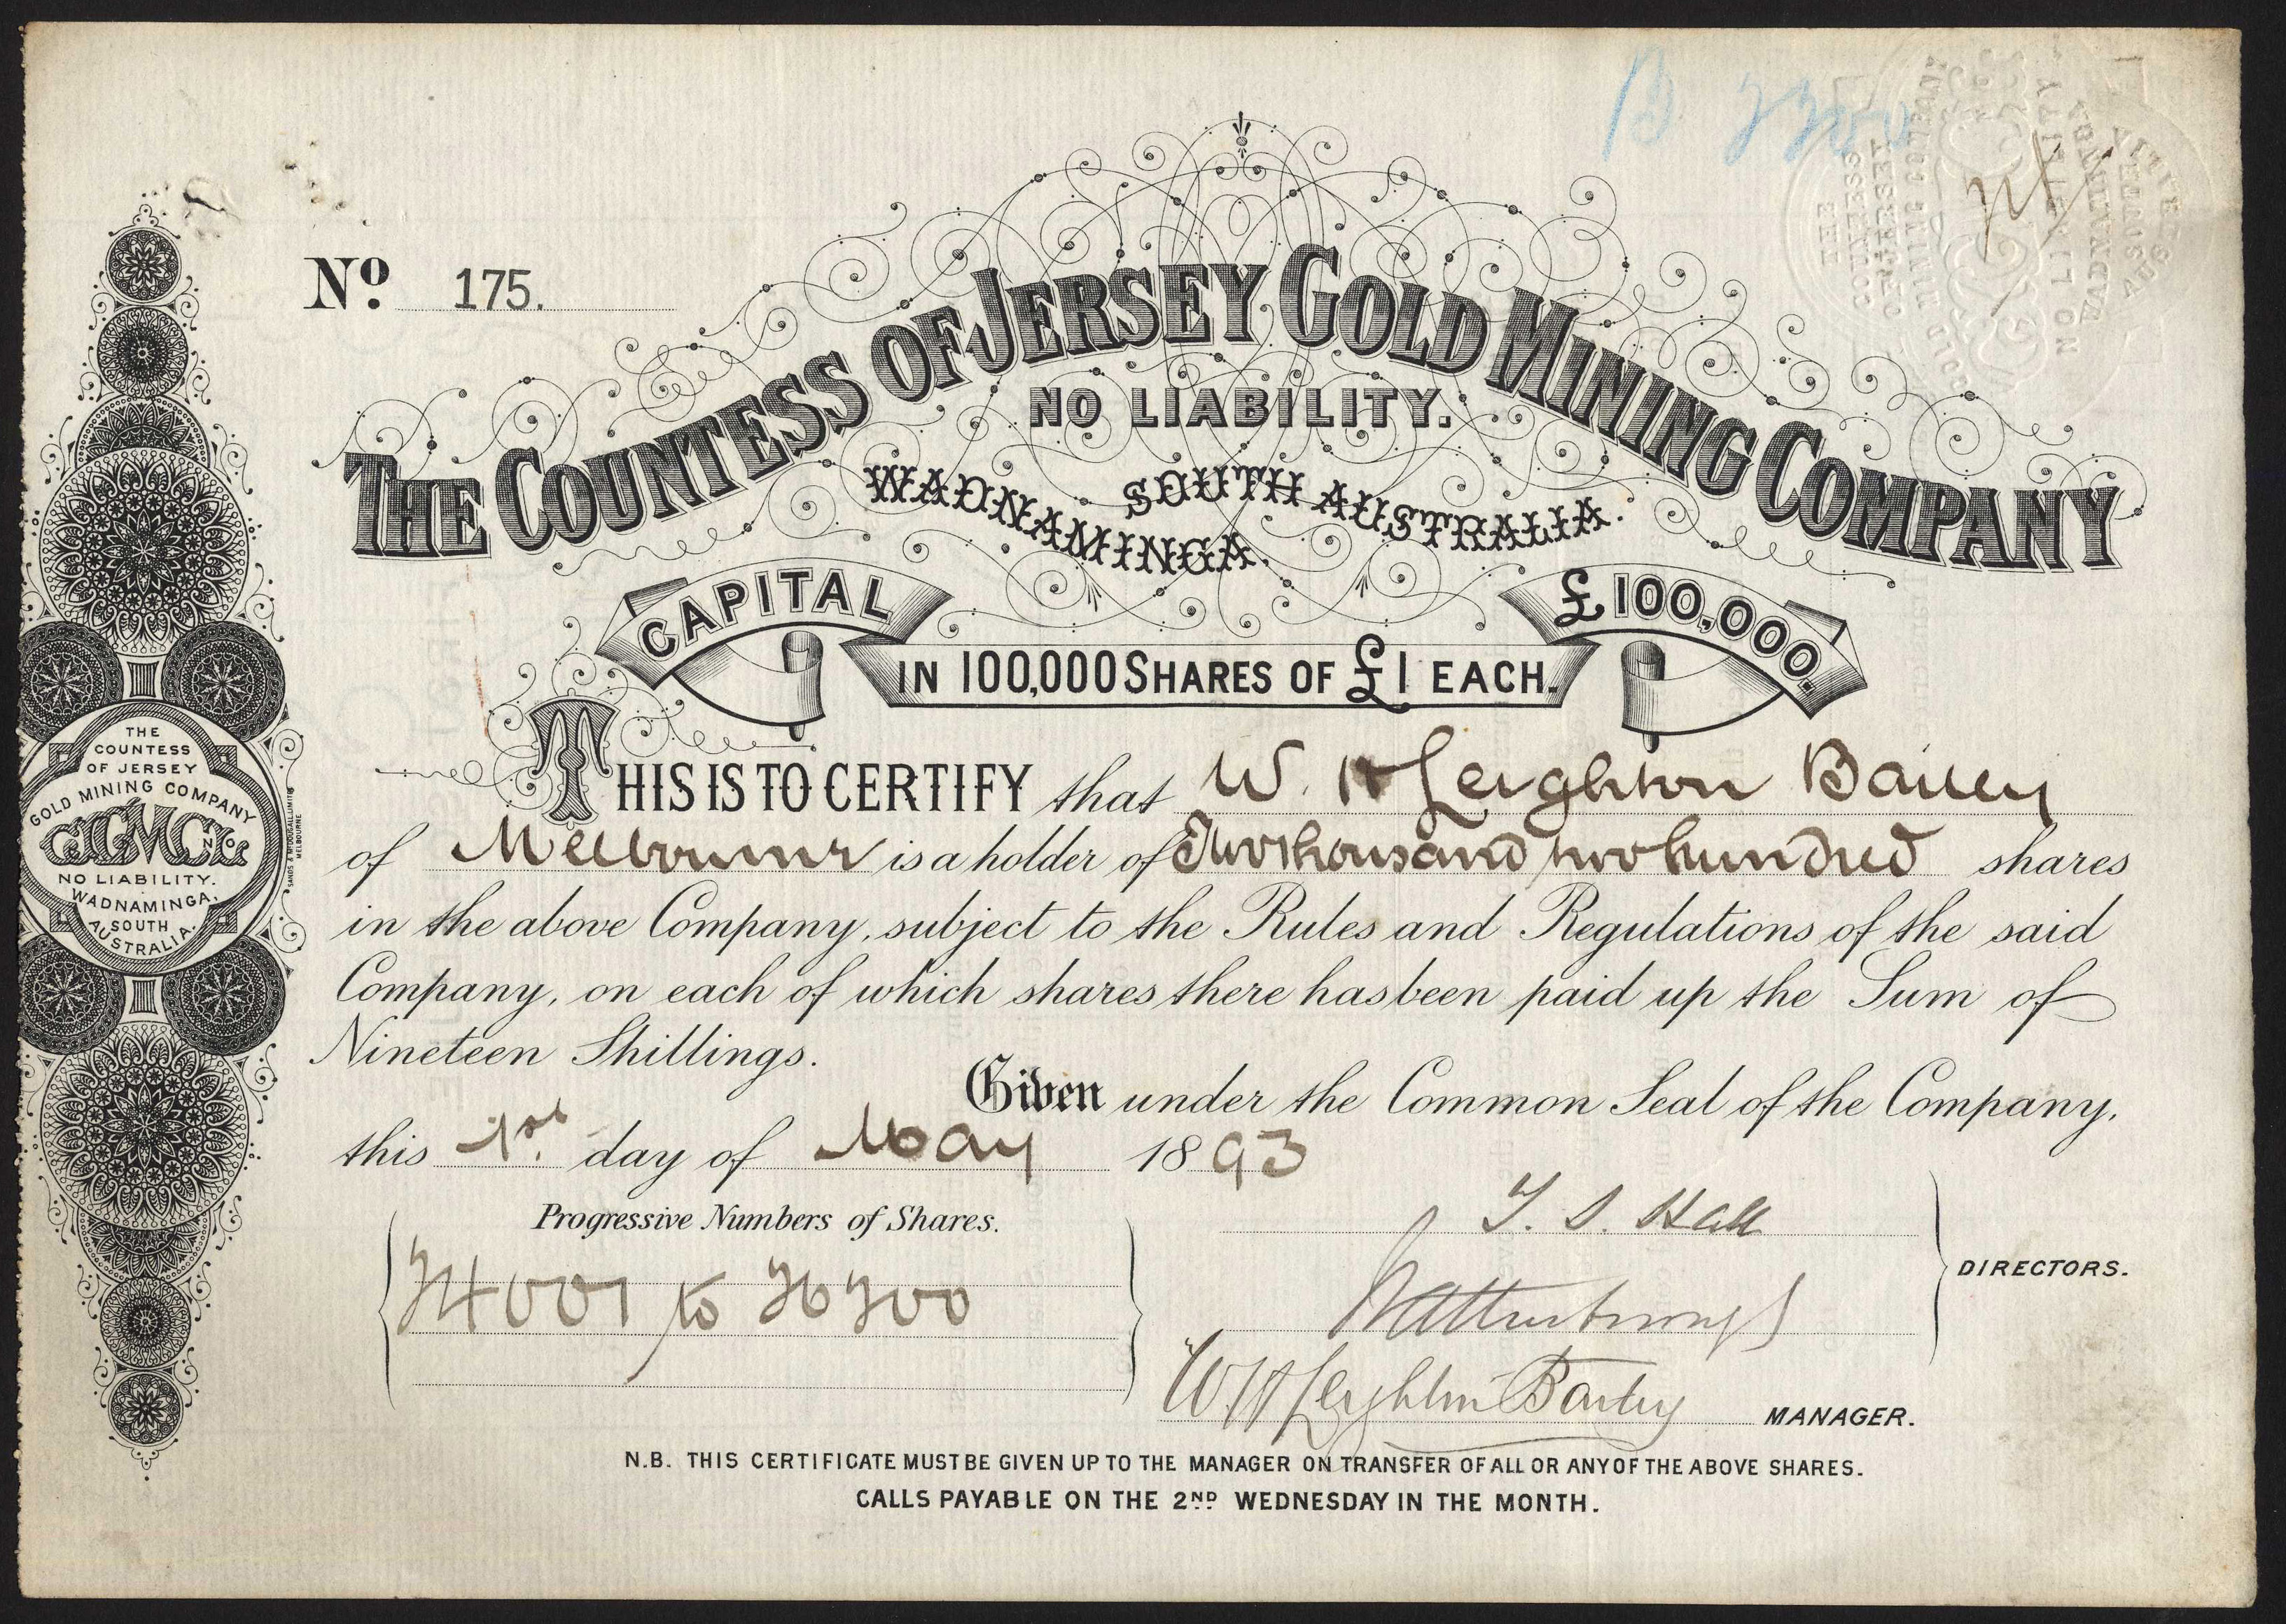 B 2200
No. 175.
THE COUNTESS OF JERSEY GOLD MINING COMPANY
NO LIABILITY.
WADNAMINGA. SOUTH AUSTRALIA.
CAPITAL £100,000.
IN 100,000 SHARES OF £1 EACH.
THIS IS TO CERTIFY that W. H Leighton Bailey
of Melbourne is a holder of Two thousand two hundred shares
in the above Company, subject to the Rules and Regulations of the said
Company, on each of which shares there has been paid up the Sum of
Nineteen Shillings.
Given under the Common Seal of the Company,
this 1st. day of May 1893
Progressive Numbers of Shares.
24001 to 26200
T. S. Hall
DIRECTORS.
W H Leighton Bailey MANAGER.
N.B. THIS CERTIFICATE MUST BE GIVEN UP TO THE MANAGER ON TRANSFER OF ALL OR ANY OF THE ABOVE SHARES.
CALLS PAYABLE ON THE 2ND WEDNESDAY IN THE MONTH.
THE
COUNTESS
OF JERSEY
GOLD MINING COMPANY
NO LIABILITY.
WADNAMINGA,
SOUTH
AUSTRALIA.
SANDS & McDOUGALL LIMITED
MELBOURNE
THE
COUNTESS
OF JERSEY
GOLD MINING COMPANY
NO LIABILITY
WADNAMINGA
SOUTH
AUSTRALIA